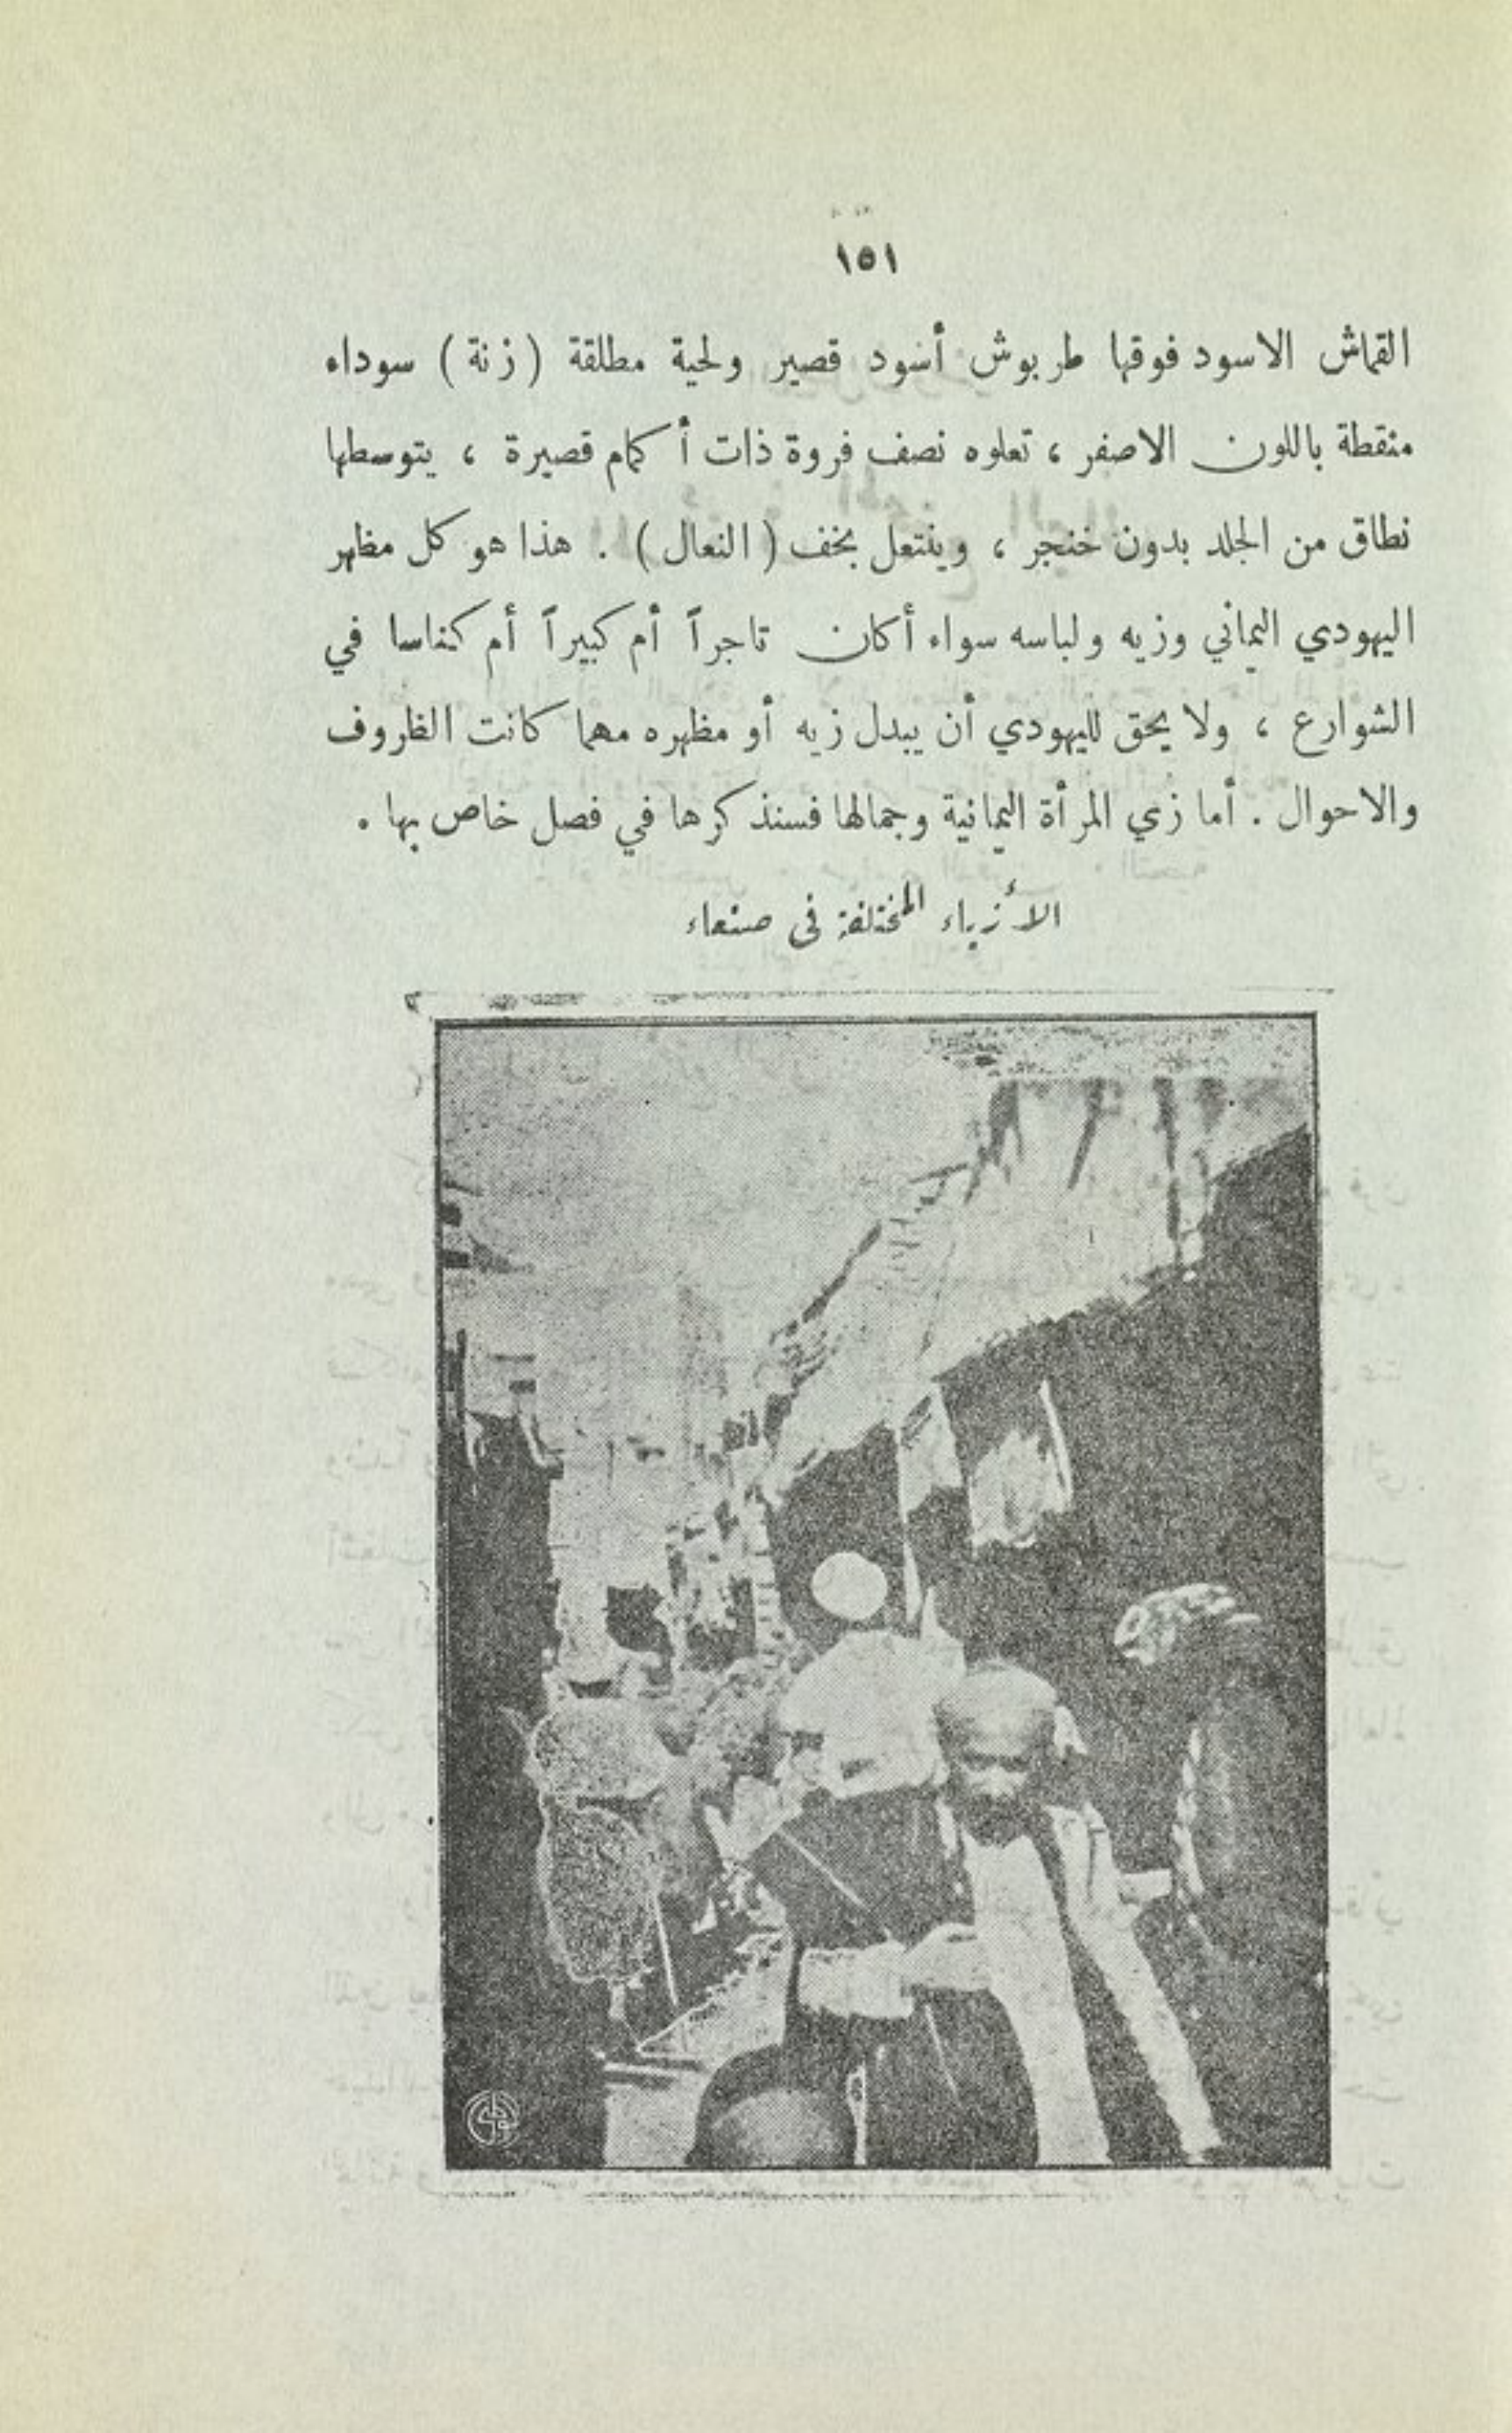 ١٥١
القماش الاسود فوقها طربوش أسود قصير ولحية مطلقة ( زنة ) سوداء
منقطة باللون الاصفر ، تعلوه نصف فروة ذات أكمام قصيرة ، يتوسطها
نطاق من الجلد بدون خنجر ، وينتعل بخف ( النعال ) . هذا هو كل مظهر
اليهودي اليماني وزيه ولباسه سواء أكان تاجراً أم كبيراً أم كناسا في
الشوارع ، ولا يحق لليهودي أن يبدل زيه أو مظهره مهما كانت الظروف
والاحوال . أما زي المرأة اليمانية وجمالها فسنذكرها في فصل خاص بها .
الأزياء المختلفة في صنعاء